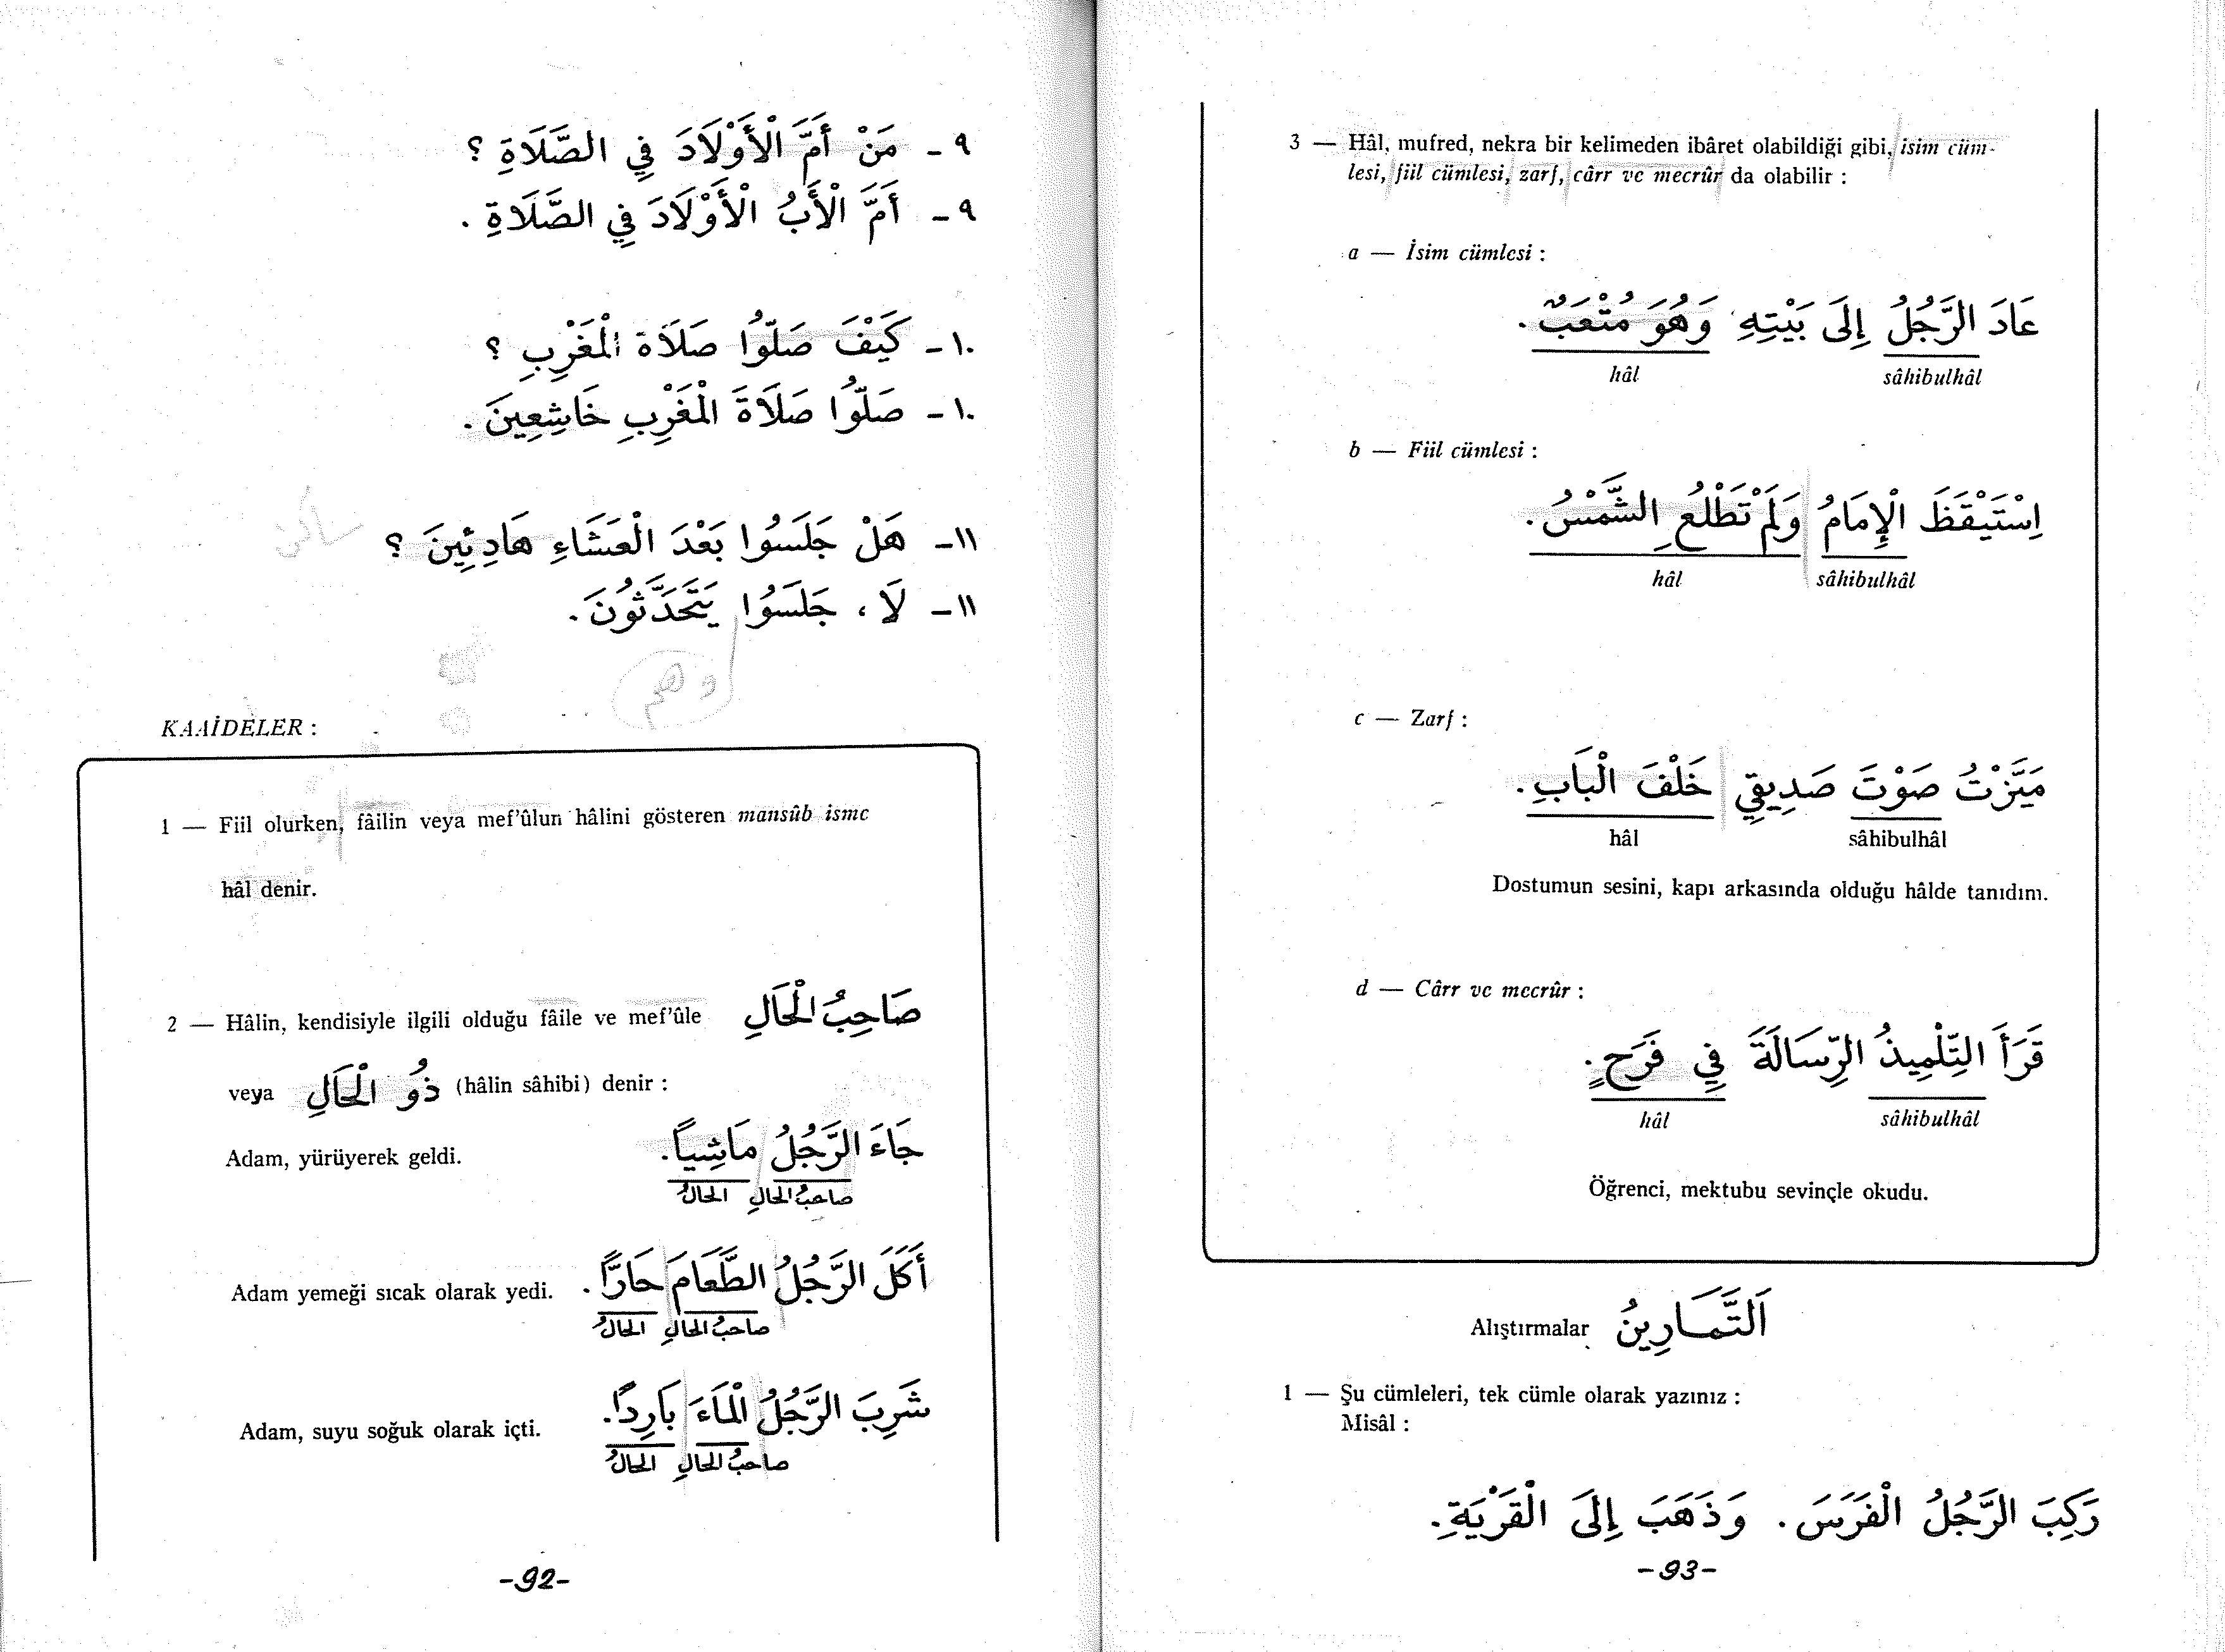 ٩ - مَنْ أَمَّ الْأَوْلَادَ فِي الصَّلَاةِ ؟
٩ - أَمَّ الْأَبُ الْأَوْلَادَ فِي الصَّلَاةِ .
١٠ - كَيْفَ صَلَّوُا صَلَاةَ الْمَغْرِبِ ؟
١٠ - صَلَّوُا صَلَاةَ الْمَغْرِبِ خَاشِعِينَ .
١١ - هَلْ جَلَسُوا بَعْدَ الْعَشَاءِ هَادِئِينَ ؟
١١ - لَا ، جَلَسُوا يَتَحَدَّثُونَ .
وهم
KAAİDELER :
1 — Fiil olurken, fâilin veya mef'ûlun hâlini gösteren mansûb isme
hâl denir.
2 — Hâlin, kendisiyle ilgili olduğu fâile ve mef'ûle صَاحِبُ الْحَالِ
veya ذُو الْحَالِ (hâlin sâhibi) denir :
Adam, yürüyerek geldi. جَاءَ الرَّجُلُ مَاشِياً .
صاحبُ الحالِ الحالُ
Adam yemeği sıcak olarak yedi. أَكَلَ الرَّجُلُ الطَّعَامَ حَارّاً .
صاحبُ الحالِ الحالُ
Adam, suyu soğuk olarak içti. شَرِبَ الرَّجُلُ الْمَاءَ بَارِداً .
صاحبُ الحالِ الحالُ
-92-
3 — Hâl, mufred, nekra bir kelimeden ibâret olabildiği gibi, isim cüm-
lesi, fiil cümlesi, zarf, cârr ve mecrûr da olabilir :
a — İsim cümlesi :
عَادَ الرَّجُلُ إِلَى بَيْتِهِ وَهُوَ مُتْعَبٌ .
hâl sâhibulhâl
b — Fiil cümlesi :
اِسْتَيْقَظَ الْإِمَامُ وَلَمْ تَطْلُعِ الشَّمْسُ .
hâl sâhibulhâl
c — Zarf :
مَيَّزْتُ صَوْتَ صَدِيقِي خَلْفَ الْبَابِ .
hâl sâhibulhâl
Dostumun sesini, kapı arkasında olduğu hâlde tanıdım.
d — Cârr ve mecrûr :
قَرَأَ التِّلْمِيذُ الرِّسَالَةَ فِي فَرَحٍ .
hâl sâhibulhâl
Öğrenci, mektubu sevinçle okudu.
Alıştırmalar اَلتَّمَارِينُ
1 — Şu cümleleri, tek cümle olarak yazınız :
Misâl :
رَكِبَ الرَّجُلُ الْفَرَسَ . وَذَهَبَ إِلَى الْقَرْيَةِ .
-93-